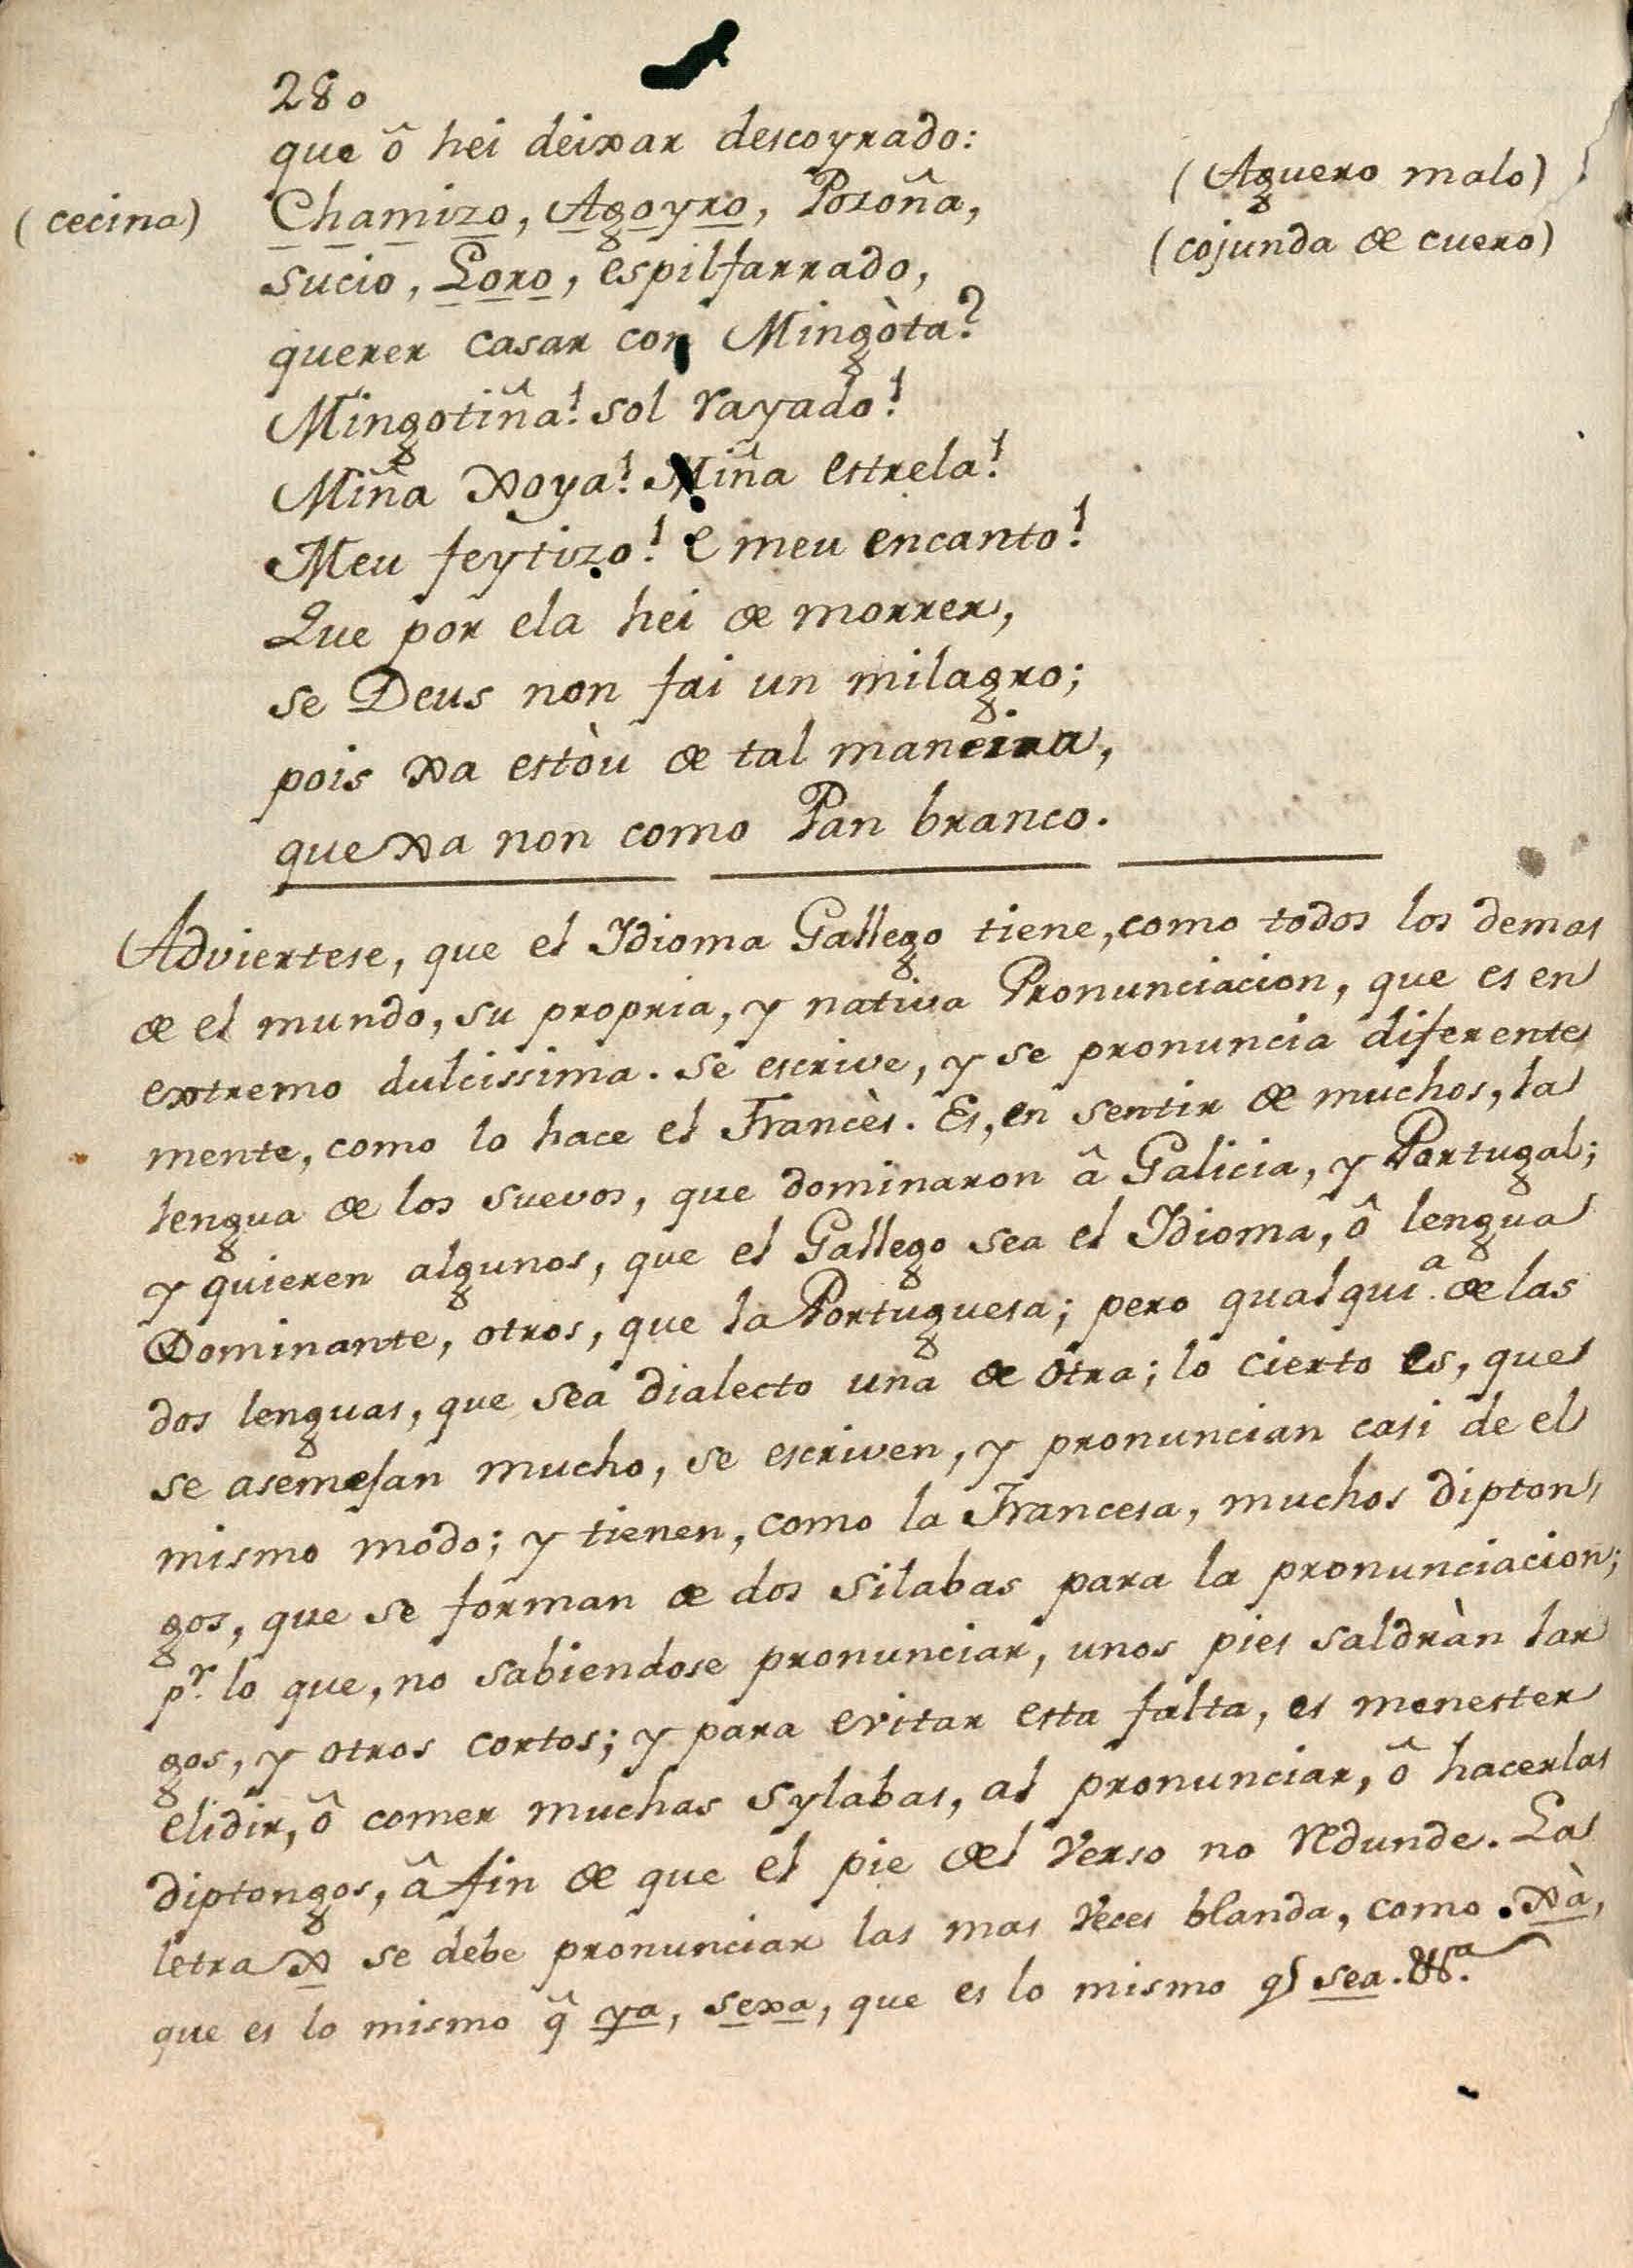 280
que ô hei deixar descoyrado:
(cecina) Chamizo, Agoyro, Pozoña, (Aguero malo)
sucio, Loro, espilfarrado, (cojunda de cuero)
querer casar con Mingòta?
Mingotiña! sol rayado!
Miña xoya! Miña estrela!
Meu feytizo! e meu encanto!
Que por ela hei de morrer,
se Deus non fai un milagro;
pois xa estòu de tal maneira,
que xa non como Pan branco.
Adviertese, que el Idioma Gallego tiene, como todos los demas
de el mundo, su propria, y nativa Pronunciacion, que es en
extremo dulcissima. Se escrive, y se pronuncia diferente
mente, como lo hace el Francès. Es, en sentir de muchos, la
lengua de los suevos, que dominaron â Galicia, y Portugal;
y quieren algunos, que el Gallego sea el Idioma, ô lengua
Dominante, otros, que la Portuguesa; pero qualqui.ª de las
dos lenguas, que sea dialecto una de otra; lo cierto es, que
se asemejan mucho, se escriven, y pronuncian casi de el
mismo modo; y tienen, como la Francesa, muchos dipton
gos, que se forman de dos silabas para la pronunciacion;
p.r lo que, no sabiendose pronunciar, unos pies saldràn lar
gos, y otros cortos; y para evitar esta falta, es menester
elidir, ô comer muchas sylabas, al pronunciar, ô hacerlas
diptongos, â fin de que el pie del verso no redunde. La
letra x se debe pronunciar las mas veces blanda, como xà,
que es lo mismo q̂ ya, sexa, que es lo mismo q̂ sea. &.ª